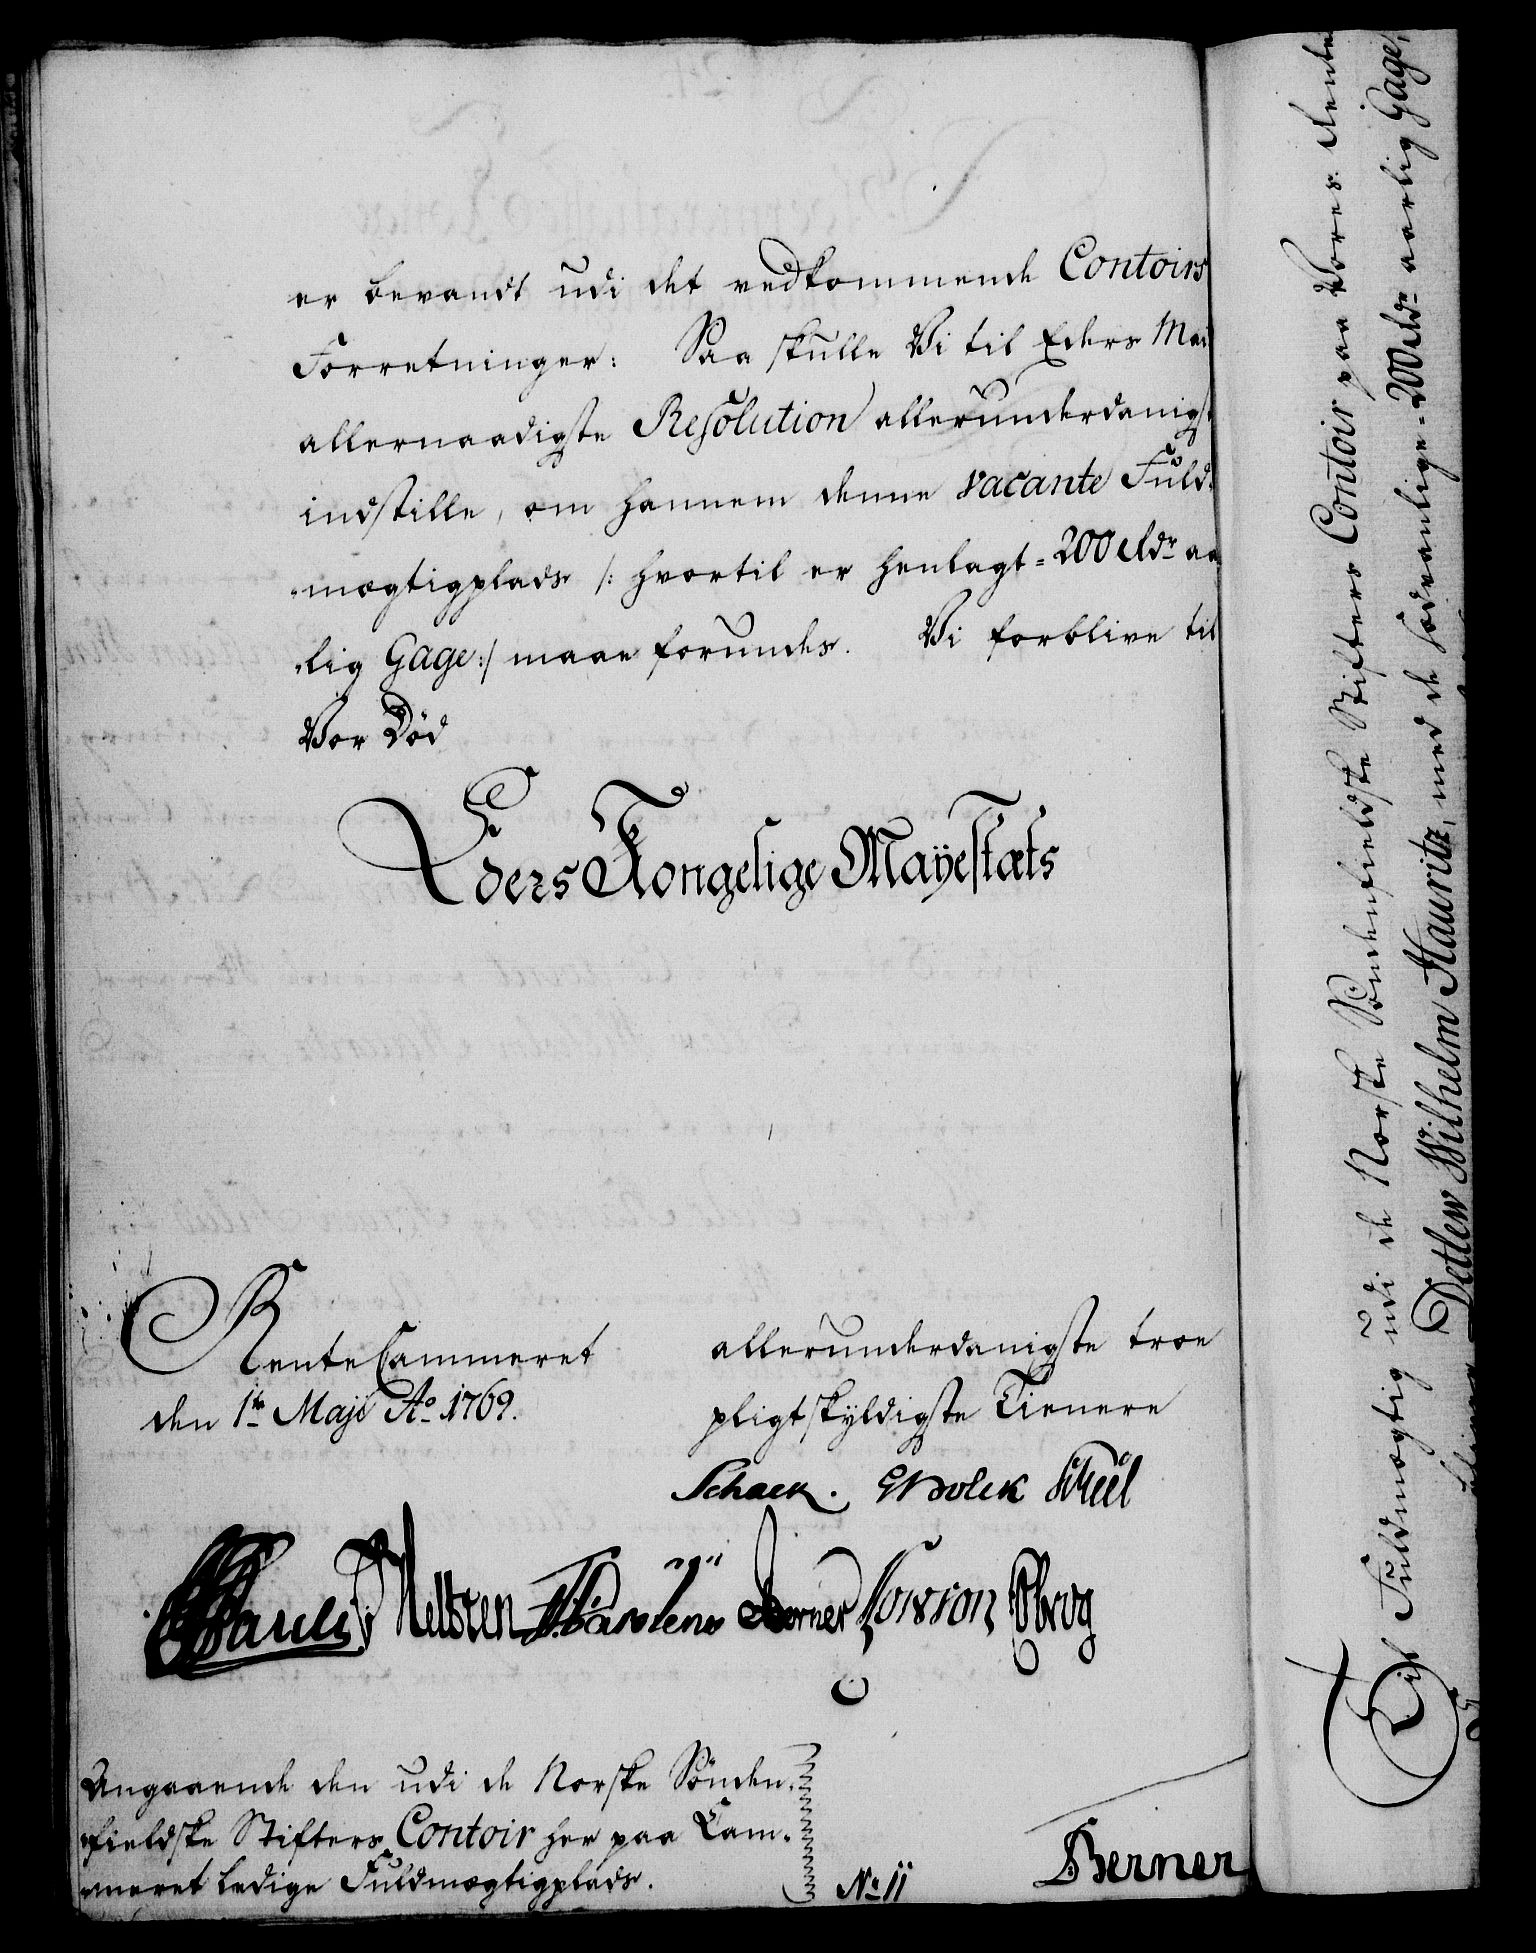 er bevandt udi det vedkommende Contoirs
Forretninger: Saa skulle Vi til Eders Mai
allernaadigste Resolution allerunderdanigst
indstille, om hannem denne vacante Fuld-
mægtigplads /: hvortil er henlagt = 200 Rdr aa
lig Gage :/ maae forundes. Vi forblive til
Vor Död
Eders Kongelige Mayestæts
RenteCammeret
den 1te Maji Ao 1769.
allerunderdanigste troe
pligtskyldigste Tienere
Schack. Holck Scheel
Pauli Helsten Berner Lowson
Angaaende den udi de Norske Sönden-
fieldske Stifters Contoir her paa Cam-
meret ledige Fuldmægtigplads.
No 11
Berner
Til Fuldmægtig udi de Norske Söndenfieldske Stifters Contoir paa Vores Rente
Detlew Wilhelm Hauritz, med de sædvanlige = 200 Rdr aarlig Gage,